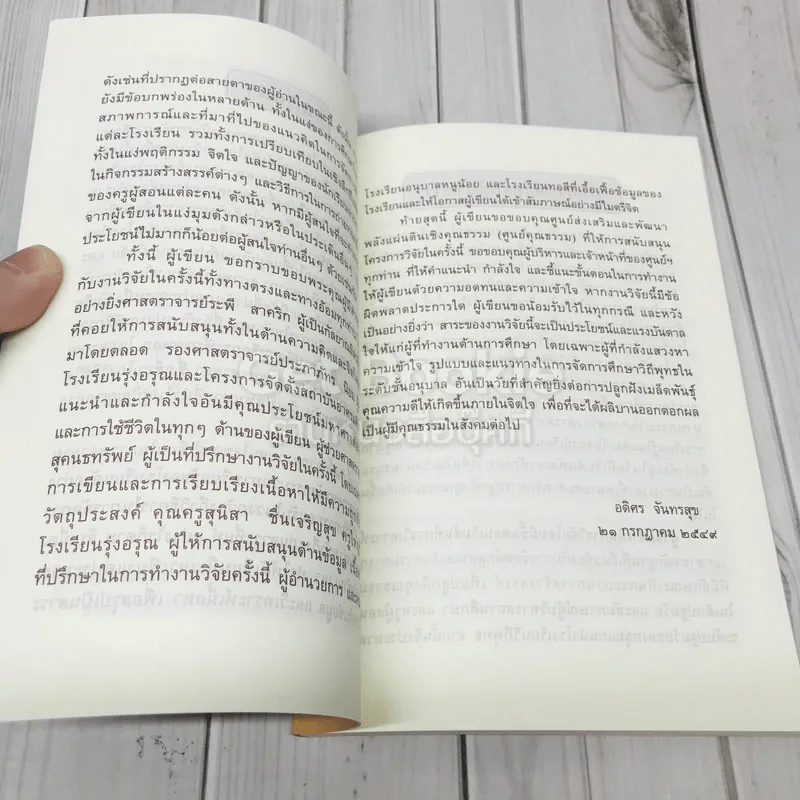 ดังเช่นที่ปรากฏต่อสายตาของผู้อ่านในขณะนี้
ยังมีข้อบกพร่องในหลายด้าน ทั้งในแง่ของการ
สภาพการณ์และที่มาที่ไปของแนวคิดในการ
แต่ละโรงเรียน รวมทั้งการเปรียบเทียบในเชิงลึก
ทั้งในแง่พฤติกรรม จิตใจ และปัญญาของนักเรียน
ในกิจกรรมสร้างสรรค์ต่างๆ และวิธีการในการ
ของครูผู้สอนแต่ละคน ดังนั้น หากมีผู้สนใจที่จะ
จากผู้เขียนในแง่มุมดังกล่าวหรือในประเด็นอื่นๆ
ประโยชน์ไม่มากก็น้อยต่อผู้สนใจท่านอื่นๆ ด้วยเช่นกัน
ทั้งนี้ ผู้เขียน ขอกราบขอบพระคุณผู้
กับงานวิจัยในครั้งนี้ทั้งทางตรงและทางอ้อมทุกท่าน
อย่างยิ่งศาสตราจารย์ระพี สาคริก ผู้เป็นกัลยาณมิตร
ที่คอยให้การสนับสนุนทั้งในด้านความคิดและ
มาโดยตลอด รองศาสตราจารย์ประภาภัทร
โรงเรียนรุ่งอรุณและโครงการจัดตั้งสถาบัน
แนะนำและกำลังใจอันมีคุณประโยชน์มหาศาล
และการใช้ชีวิตในทุกๆ ด้านของผู้เขียน ผู้ช่วยศาสตรา
สุคนธทรัพย์ ผู้เป็นที่ปรึกษางานวิจัยในครั้งนี้ โดย
การเขียนและการเรียบเรียงเนื้อหาให้มีความ
วัตถุประสงค์ คุณครูสุนิสา ชื่นเจริญสุข ครู
โรงเรียนรุ่งอรุณ ผู้ให้การสนับสนุนด้านข้อมูล
ที่ปรึกษาในการทำงานวิจัยครั้งนี้ ผู้อำนวยการ และ
โรงเรียนอนุบาลหนูน้อย และโรงเรียนทอสีที่เอื้อเฟื้อข้อมูลของ
โรงเรียนและให้โอกาสผู้เขียนได้เข้าสัมภาษณ์อย่างมีไมตรีจิต
ท้ายสุดนี้ ผู้เขียนขอขอบคุณศูนย์ส่งเสริมและพัฒนา
พลังแผ่นดินเชิงคุณธรรม (ศูนย์คุณธรรม) ที่ให้การสนับสนุน
โครงการวิจัยในครั้งนี้ ขอขอบคุณผู้บริหารและเจ้าหน้าที่ของศูนย์ฯ
ทุกท่าน ที่ให้คำแนะนำ กำลังใจ และชี้แนะขั้นตอนในการทำงาน
ให้ผู้เขียนด้วยความอดทนและความเข้าใจ หากงานวิจัยนี้มีข้อ
ผิดพลาดประการใด ผู้เขียนขอน้อมรับไว้ในทุกกรณี และหวัง
เป็นอย่างยิ่งว่า สาระของงานวิจัยนี้จะเป็นประโยชน์และแรงบันดาล
ใจให้แก่ผู้ที่ทำงานด้านการศึกษา โดยเฉพาะผู้ที่กำลังแสวงหา
ความเข้าใจ รูปแบบและแนวทางในการจัดการศึกษาวิถีพุทธใน
ระดับชั้นอนุบาล อันเป็นวัยที่สำคัญยิ่งต่อการปลูกฝังเมล็ดพันธุ์
คุณความดีให้เกิดขึ้นภายในจิตใจ เพื่อที่จะได้ผลิบานออกดอกผล
เป็นผู้มีคุณธรรมในสังคมต่อไป
อดิศร จันทรสุข
๒๑ กรกฎาคม ๒๕๔๙